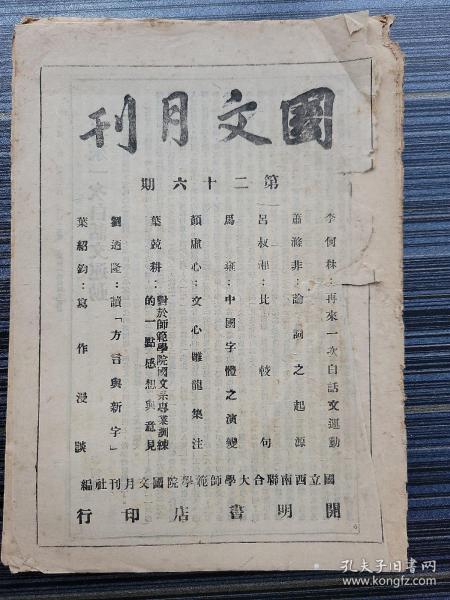 國文月刊
第二十六期
李何林：再來一次白話文運動
蕭滌非：論詞之起源
呂叔湘：比較句
馬衷：中國字體之演變
顏虛心：文心雕龍集注
葉兢耕：對於師範學院國文系專業訓練的一點感想與意見
劉迺隆：讀「方言與新字」
葉紹鈞：寫作漫談
國立西南聯合大學師範學院國文月刊社編
開明書店印行
孔夫子旧书网
kongfz.com